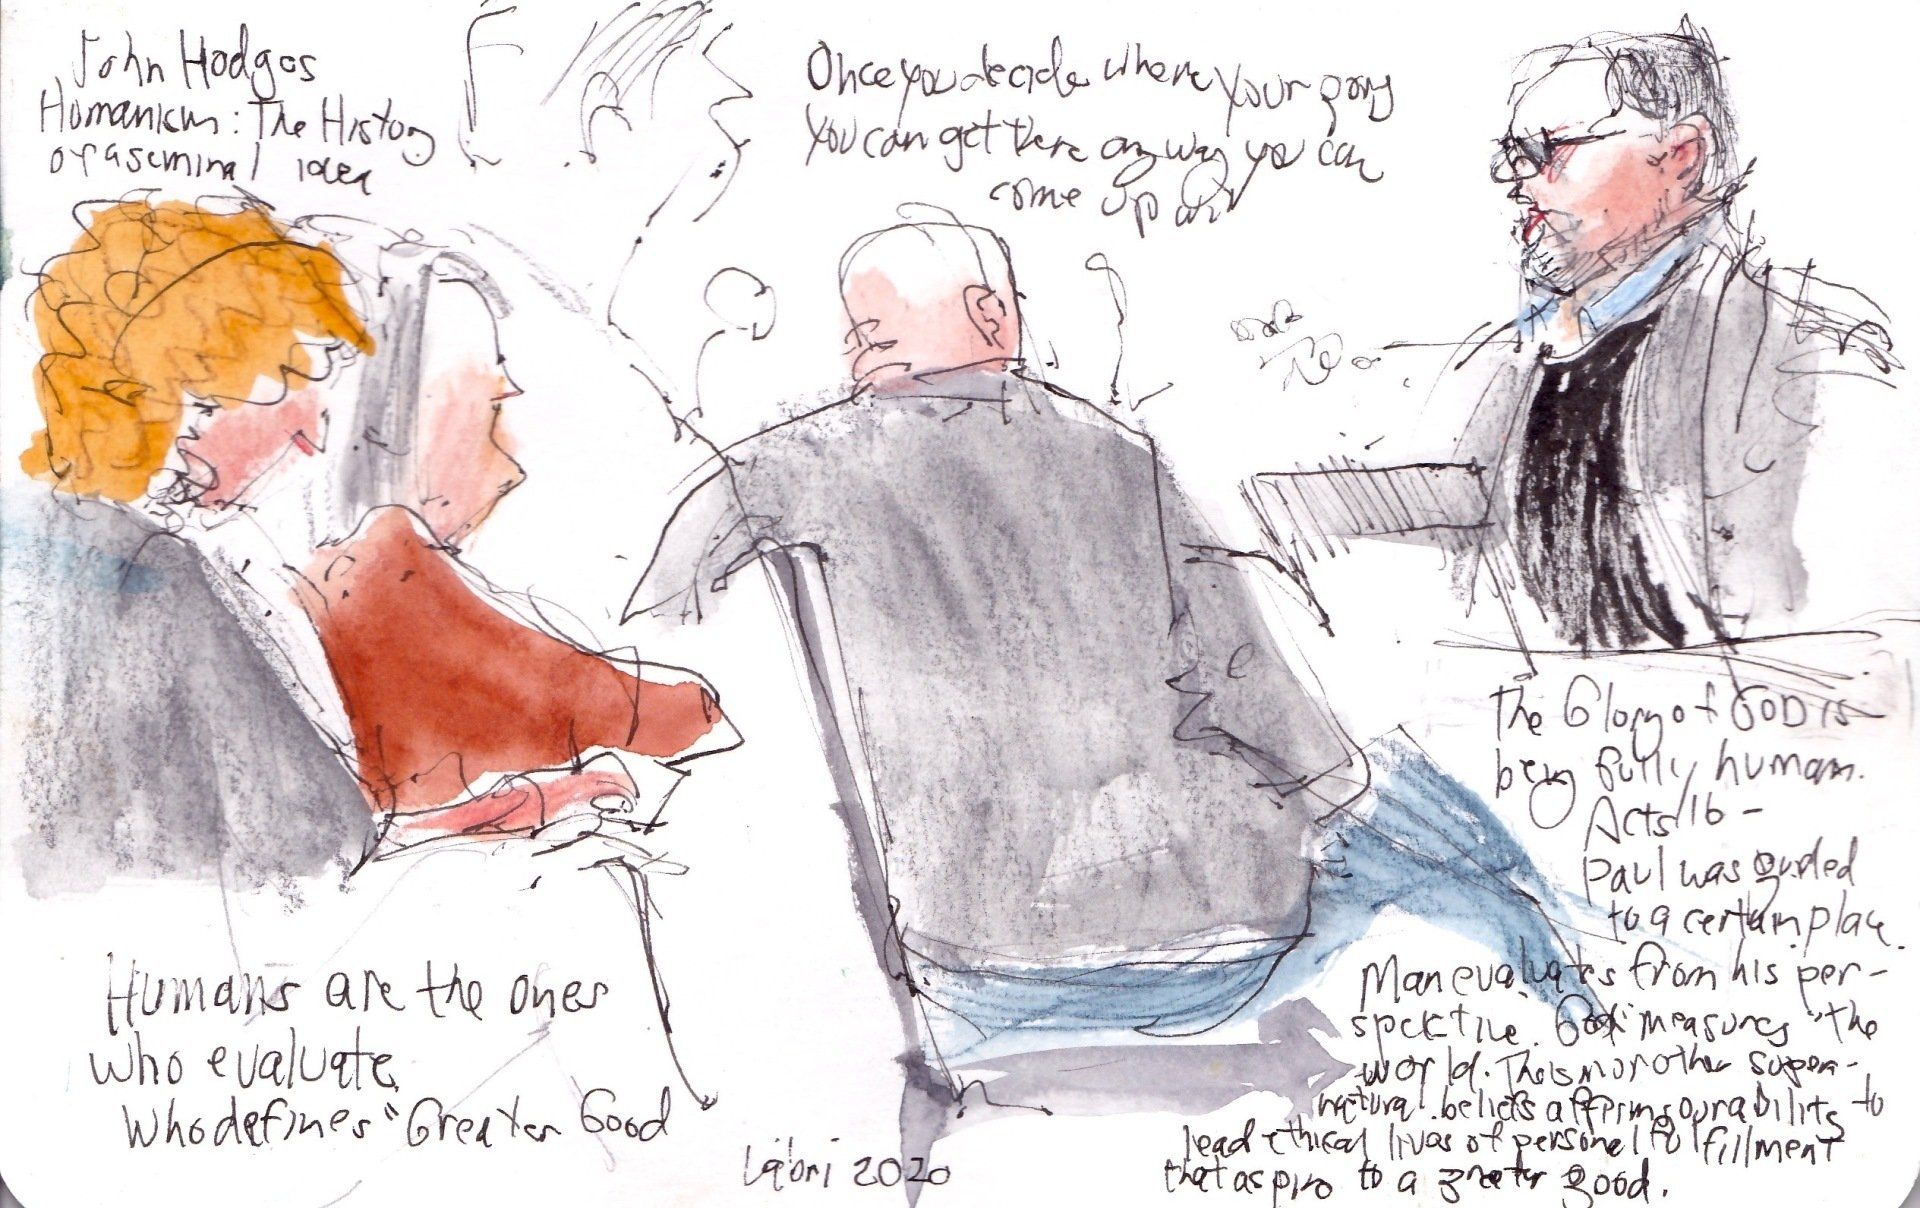 John Hodges
Humanism: The History
of a seminal idea
Once you decide where your going
You can get there any way you can
come up with
The Glory of GOD is
being fully human.
Acts 16 -
Paul was guided
to a certain place.
Man evaluates from his per-
spective. God "measures" the
world. Theism or other super-
natural beliefs affirms our ability to
lead ethical lives of personal fulfillment
that aspire to a greater good.
Humans are the ones
who evaluate
Who defines "Greater Good
2020